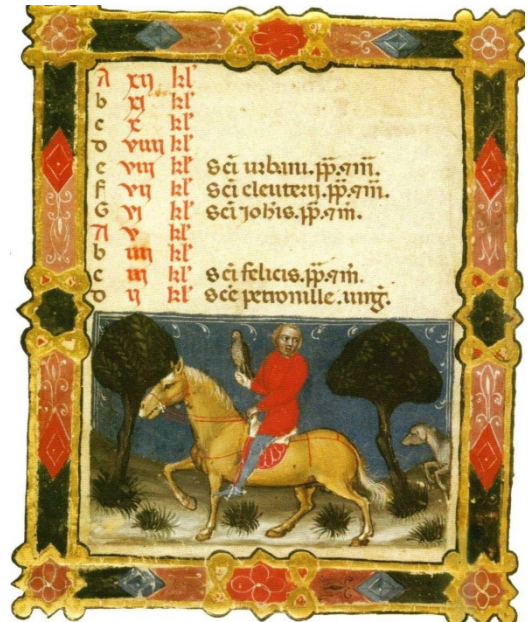 A xij kl'
b xj kl'
c x kl'
D viiij kl'
e viij kl' Sci urbani. pp. ⁊ m̄.
f vij kl' Sci eleuterij. pp. ⁊ m̄.
G vj kl' Sci Johis. pp. ⁊ m̄.
A v kl'
b iiij kl'
c iij kl' Sci felicis. pp. ⁊ m̄.
D ij kl' Sce petronille. uirg̅.